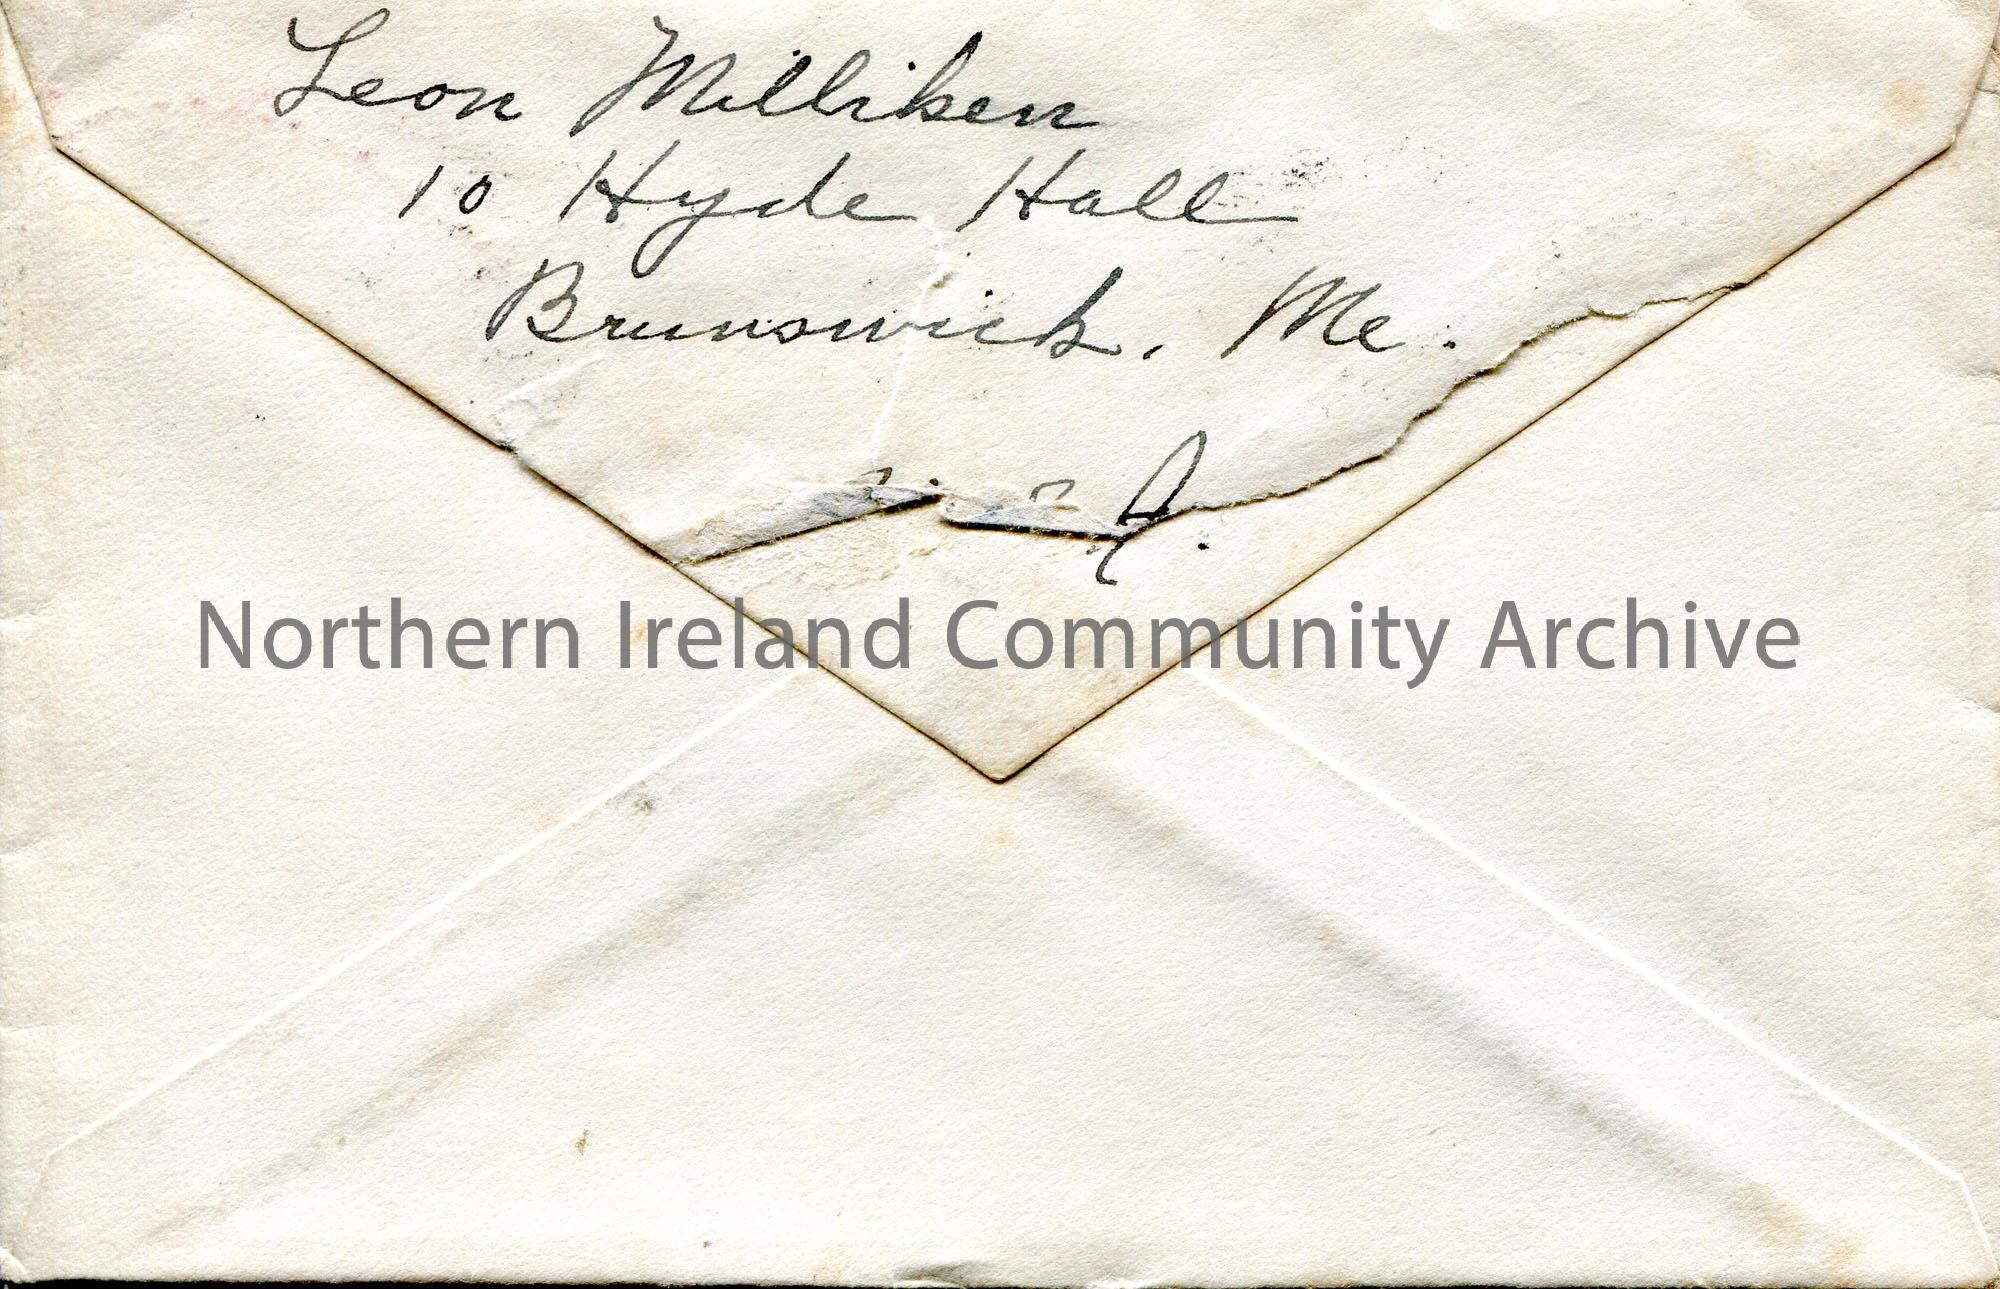 Leon Milliken
10 Hyde Hall
Brunswick, Me.
A.
Northern Ireland Community Archive